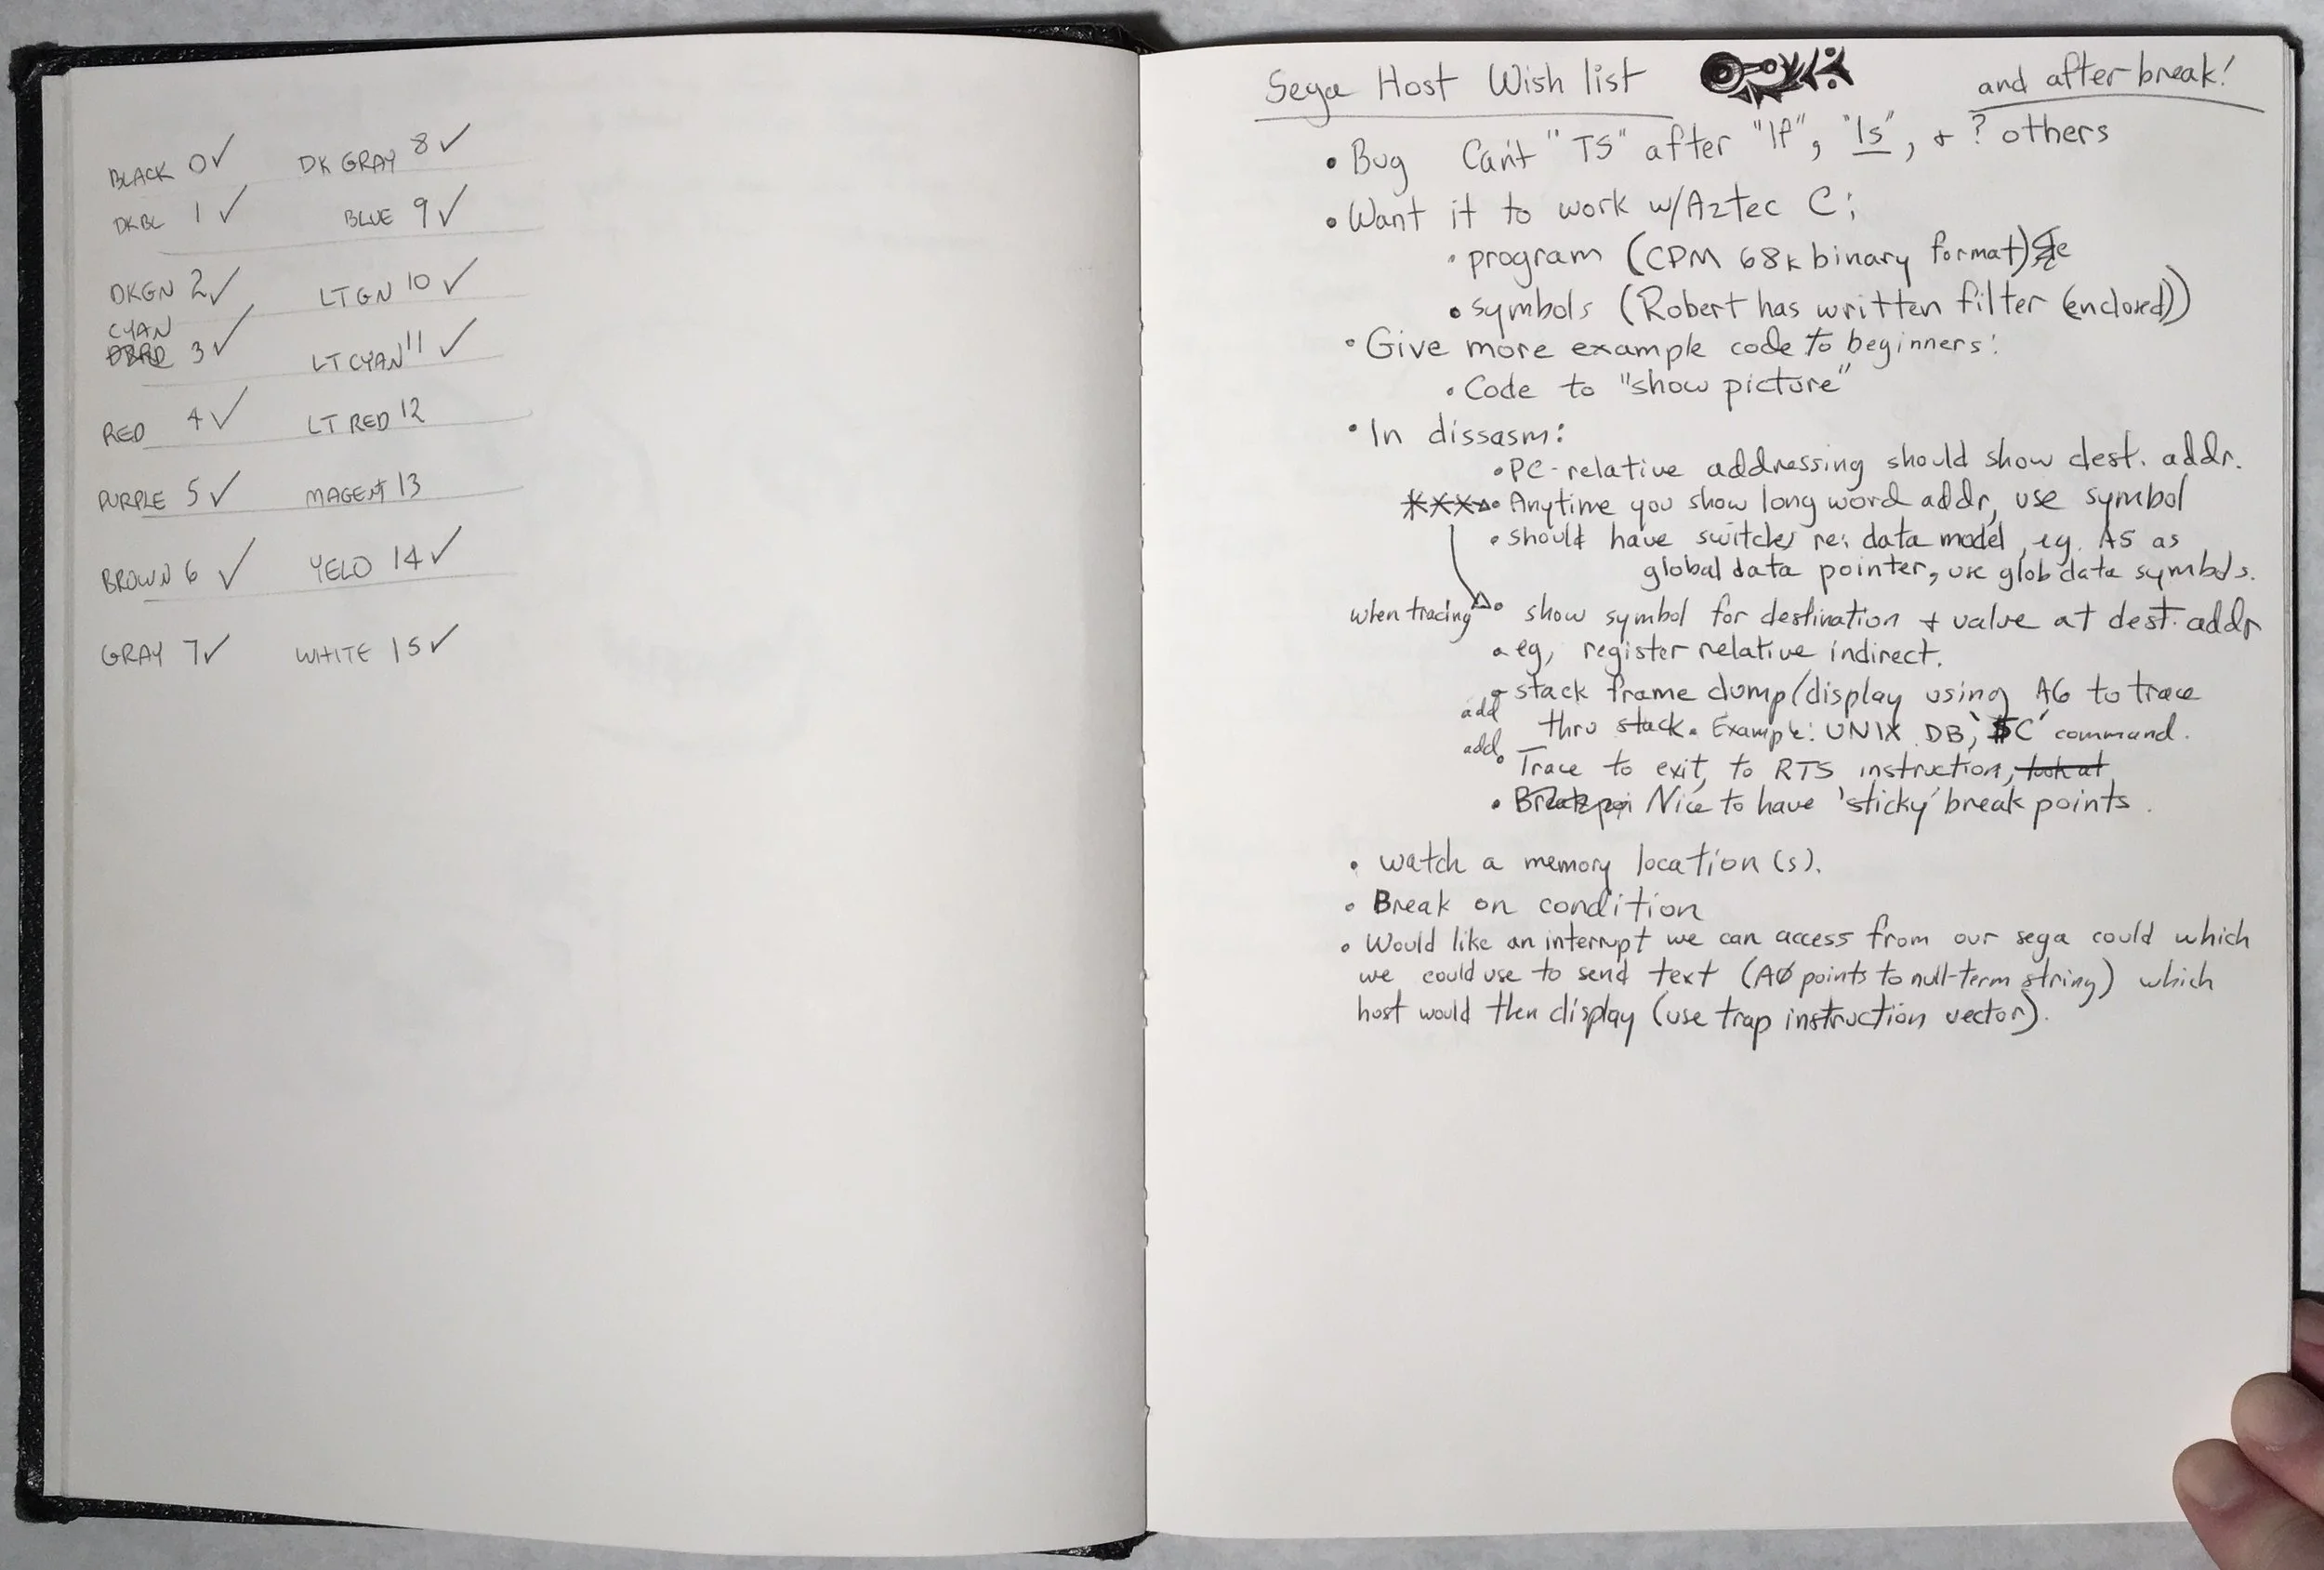 BLACK 0✓ DK GRAY 8✓
DKBL 1✓ BLUE 9✓
DKGN 2✓ LTGN 10✓
CYAN
3✓ LT CYAN 11✓
RED 4✓ LT RED 12
PURPLE 5✓ MAGENT 13
BROWN 6✓ YELO 14✓
GRAY 7✓ WHITE 15✓
Sega Host Wish list
and after break!
• Bug Can't "TS" after "lf", "ls", + ? others
• Want it to work w/Aztec C:
• program (CPM 68k binary format)
• symbols (Robert has written filter (enclosed))
• Give more example code to beginners:
• Code to "show picture"
• In dissasm:
• PC-relative addressing should show dest. addr.
• Anytime you show long word addr, use symbol
• should have switches re: data model, eg. A5 as
global data pointer, use glob data symbols.
when tracing • show symbol for destination + value at dest. addr
• eg, register relative indirect.
add • stack frame dump/display using A6 to trace
thru stack. Example: UNIX DB, '$C' command.
add • Trace to exit, to RTS instruction, look at
• Breakpoi Nice to have 'sticky' break points.
• watch a memory location(s).
• Break on condition
• Would like an interrupt we can access from our sega could which
we could use to send text (AØ points to null-term string) which
host would then display (use trap instruction vector).